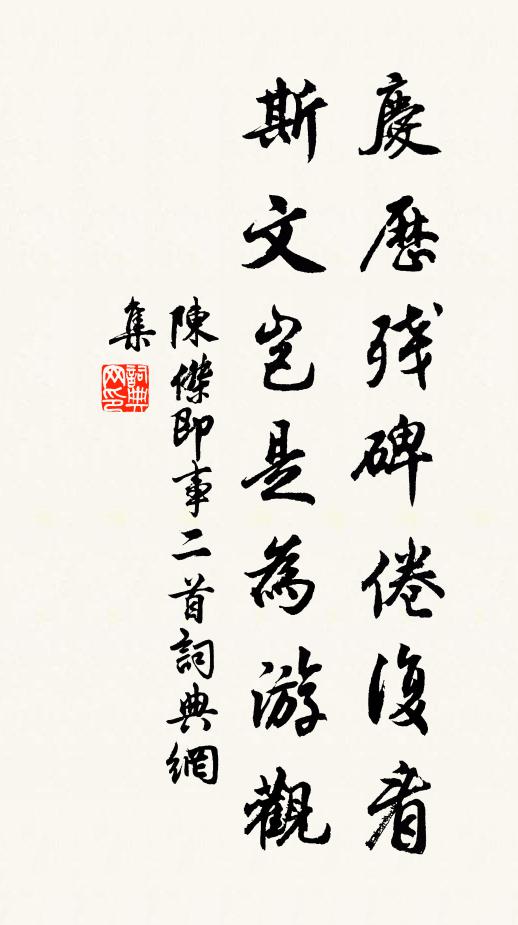 慶歷残碑倦復看
斯文豈是為游觀
陳傑即事二首詞典網
集
詞典網印